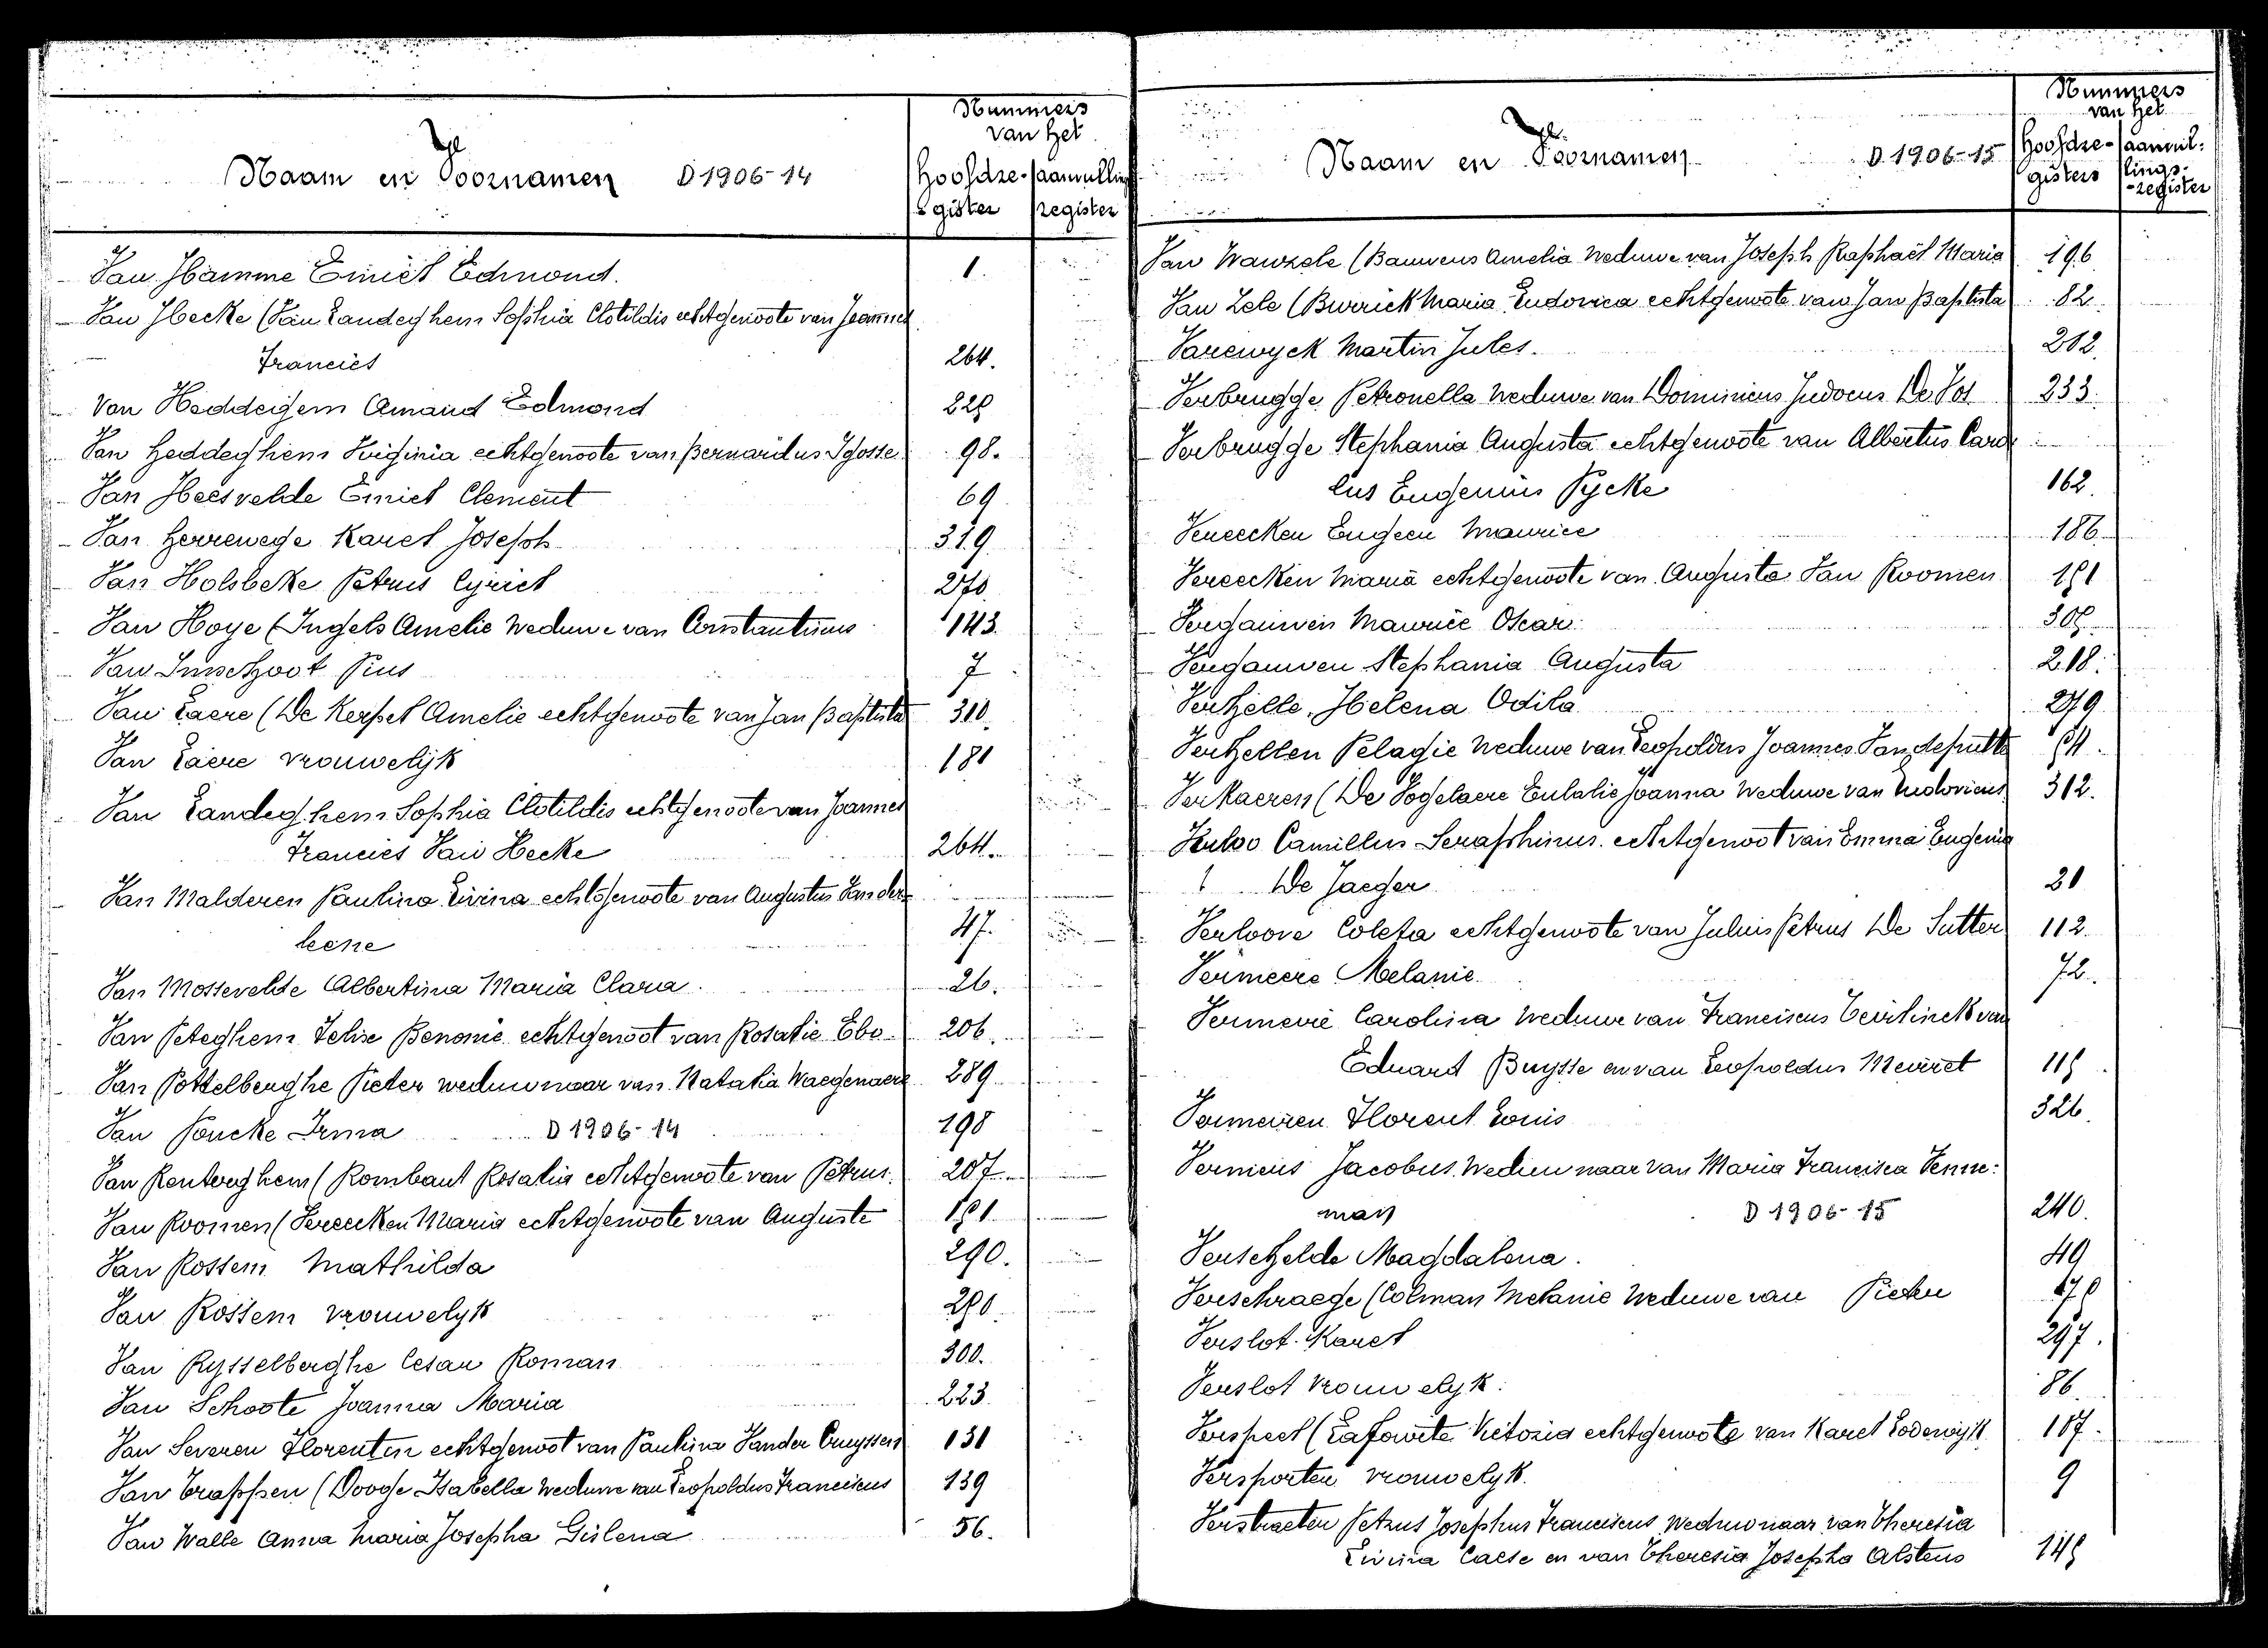 Vl
Naam en Voornamen D 1906-14
Nummers
van het
Hoofdre- aanvulling
gister register
Van Hamme Emiel Edmond. 1.
Van Hecke (Van Landeghem Sophia Clotildis echtgenoote van Joannes
Francies 264.
Van Heddegem Amand Edmond 228
Van Heddeghem Virginia echtgenoote van Bernardus Gosse 98.
Van Heesvelde Emiel Clement 69
Van Herrewege Karel Joseph 319
Van Holsbeke Petrus Cyriel 270.
Van Hoye (Ingels Amelie Weduwe van Constantinus 143.
Van Imschoot Pius 7
Van Laere (De Kerpel Amelie echtgenoote van Jan Baptista 310.
Van Laere vrouwelijk 181
Van Landeghem Sophia Clotildis echtgenoote van Joannes
Francies Van Hecke 264.
Van Malderen Paulina Livina echtgenoote van Augustus Vander
leene 47.
Van Mossevelde Albertina Maria Clara. 26.
Van Peteghem Felix Benonie echtgenoot van Rosalie Ebo 206.
Van Pottelberghe Pieter weduwnaar van Natalia Waegenaere 289
Van Poucke Irma D 1906-14 198
Van Renterghem (Rombaut Rosalia echtgenoote van Petrus 207
Van Roomen (Vereecken Maria echtgenoote van Auguste 181
Van Rossem Mathilda 290.
Van Rossem vrouwelyk 280.
Van Rysselberghe Cesar Roman 300.
Van Schoote Joanna Maria 223.
Van Severen Florentin echtgenoot van Paulina Vander Cruyssen 131
Van Trappen (Dooge Isabella Weduwe van Leopoldus Franciscus 139
Van Walle Anna Maria Josepha Gislena 56.
Vl.
Naam en Voornamen D 1906-15
Nummers
van het
Hoofdre- aanvul-
gisters lings-
-register
Van Wauzele (Bauwens Amelia Weduwe van Joseph Raphaël Maria 196
Van Zele (Buerick Maria Ludovica echtgenoote van Jan Baptista 82.
Varewyck Martin Jules. 212.
Verbrugge Petronella Weduwe van Dominicus Judocus De Vos 233.
Verbrugge Stephania Augusta echtgenoote van Albertus Caro
lus Eugenius Pycke 162.
Vereecken Eugeen Maurice 186.
Vereecken Maria echtgenoote van Augusta Van Roomen 181
Vergauwen Maurice Oscar. 308.
Vergauwen Stephania Augusta 218.
Verhelle, Helena Odila 279
Verhellen Pelagie Weduwe van Leopoldus Joannes Vandeputte 184.
Verkaeren (De Vogelaere Eulalie Joanna Weduwe van Ludovicus 312.
Verloo Camillus Seraphinus. echtgenoot van Emma Eugenia
De Jaeger 21
Verloove Coleta echtgenoote van Julius Petrus De Sutter 112.
Vermeere Melanie. 72.
Vermeire Carolina Weduwe van Franciscus Teirlinck van
Eduard Buysse en van Leopoldus Meiret 118
Vermeiren Florent Louis 326.
Vernieus Jacobus Weduwnaar van Maria Francisca Venne-
man D 1906-15 240.
Verschelde Magdalena. 49
Verschraege (Colman Melanie Weduwe van Pieter 170
Verslot Karel 297.
Verslot Vrouwelyk. 86.
Verspeet (Lafonte Victoria echtgenoote van Karel Lodewijk 187.
Versporten vrouwelyk. 9
Verstraeten Petrus Josephus Franciscus Weduwnaar van Theresia
Livina Calse en van Theresia Josepha Alstens 148